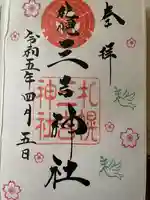 奉拝
札幌
三吉神社
札幌
三吉
神社
令和五年四月五日